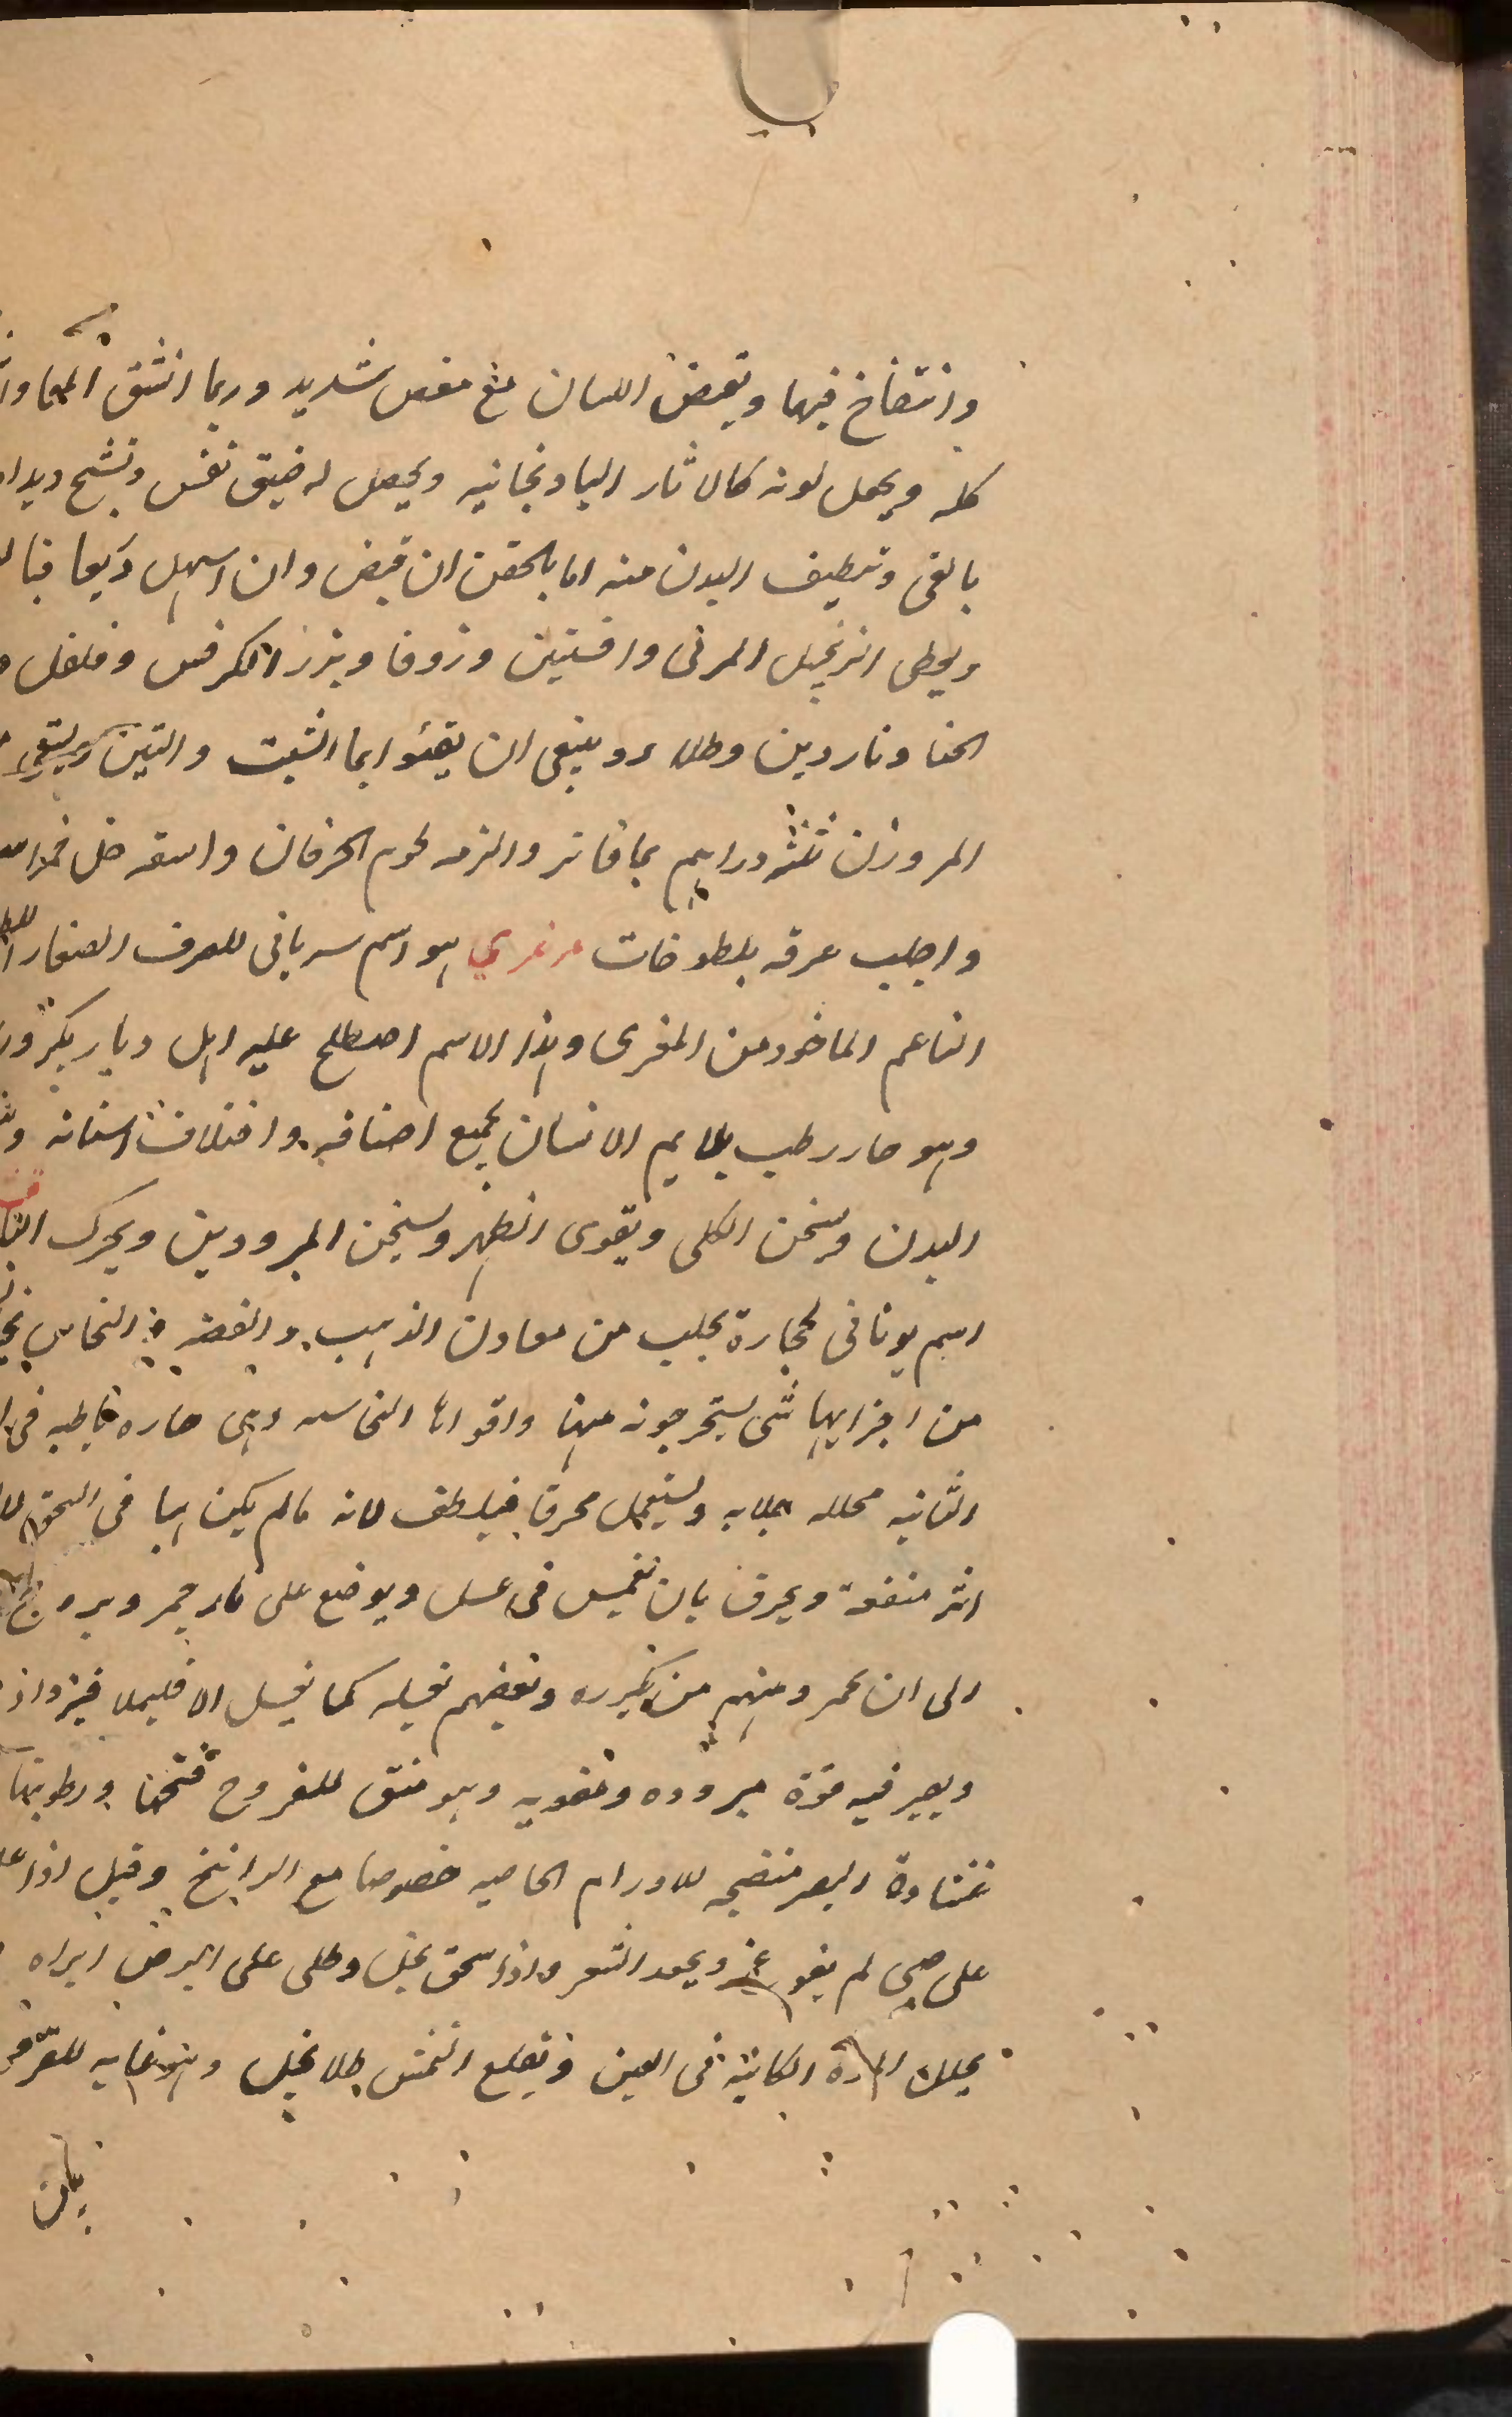 وانتفاخ فيها وتقبض اللسان مع مغص شديد وربما انشق المعا
كله ويجعل لونه كالاثار الباذنجانيه ويحصل له ضيق نفس وتشنج ويداو
بالقى وتنظيف البدن منه اما بالحقن ان قبض وان اسهل
ويعطى الزنجبيل المربى وافسنتين وزوفا وبزر الكرفس وفلفل
الحنا وناردين وطلاء وينبغى ان يقيئوا بماء الشبت والتين ويسقى
المر وزن ثلثه دراهم بما فاتر والزمه لحوم الخرفان واسقه خل خمر
واجلب عرقه بلطوخات مرغري هو اسم سريانى للصوف الصغار
الناعم الماخوذ من المغرى وهذا الاسم اصطلح عليه اهل ديار بكر
وهو حار رطب يلايم الانسان بجميع اصنافه واختلاف اسنانه
البدن ويسخن الكلى ويقوى الظهر ويسخن المبرودين ويحرك
اسم يونانى لحجارة تجلب من معادن الذهب والفضه والنحاس
من اجزايها شى يستخرجونه منها واقواها النحاسيه وهى حاره يابسه فى
الثانيه محلله جلايه ويستعمل محرقا فيلطف لانه مالم يكن هبا فى السحق
اثر منفعة ويحرق بان تغمس فى عسل ويوضع على نار جمر ويروح
الى ان يحمر ومنهم من يكرره وبعضهم يغسله كما يغسل الاقليميا
ويصير فيه قوة مبروده وعفوبه وهو منق للقروح ورطوبتها
غشاوة البصر منضجه للاورام الجاسيه خصوصا مع الراتينج وقيل اذا علق
على صبى لم يفزع ويجعد الشعر واذا سحق بخل وطلى على البرص ابراه
يحلل المدة الكاينة فى العين ويقلع النمش طلا بخل وهو غايه
بان